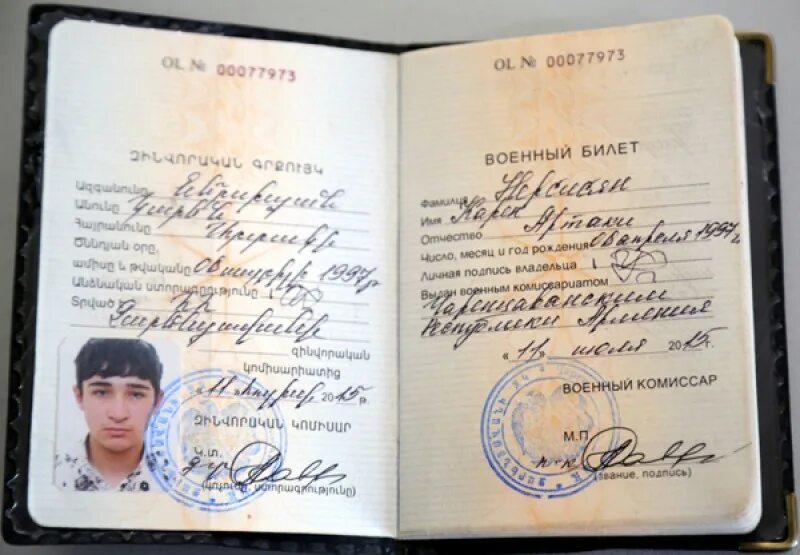 OL № 00077973
ԶԻՆՎՈՐԱԿԱՆ ԳՐՔՈՒՅԿ
Ազգանունը Ներսիսյան
Անունը Կարեն
Հայրանունը
Ծննդյան օրը,
ամիսը և թվականը 06 ապրիլի 1997թ
Անձնական ստորագրությունը
Տրված է
զինվորական
կոմիսարիատից
«11» հուլիսի 2015թ.
ԶԻՆՎՈՐԱԿԱՆ ԿՈՄԻՍԱՐ
Կ.Տ.
(կոչումը, ստորագրությունը)
OL № 00077973
ВОЕННЫЙ БИЛЕТ
Фамилия Нерсисян
Имя Карен
Отчество Артаки
Число, месяц и год рождения 06 апреля 1997г
Личная подпись владельца
Выдан военным комиссариатом
Чаренцаванским
Республики Армения
«11» июля 2015г.
ВОЕННЫЙ КОМИССАР
М.П.
п-к
(звание, подпись)